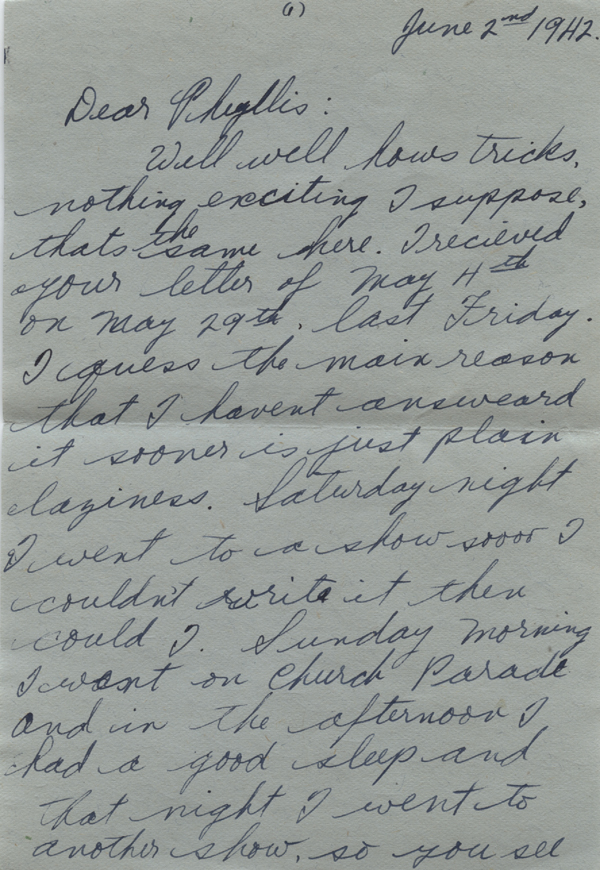 (1)
June 2nd 1942.
Dear Phyllis:
Well well hows tricks,
nothing exciting I suppose,
thats the same here. I recieved
your letter of May 4th
on May 29th, last Friday.
I guess the main reason
that I havent answeard
it sooner is just plain
laziness. Saturday night
I went to a show sooo I
couldn't write it then
could I. Sunday morning
I went on Church Parade
and in the afternoon I
had a good sleep and
that night I went to
another show, so you see